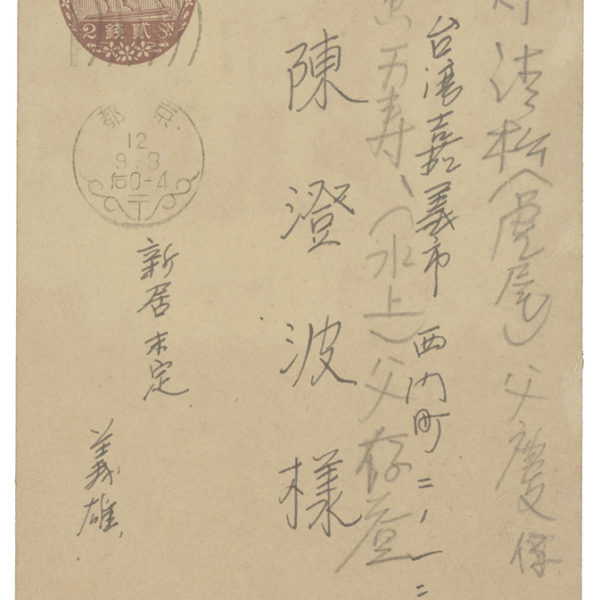 2 錢貳
京都
12
9.8
后0-4
清松(虎尾)父慶
台灣嘉義市 西門町二ノ一二
万寿、(水上)父存
陳澄波様
新居未定
義雄